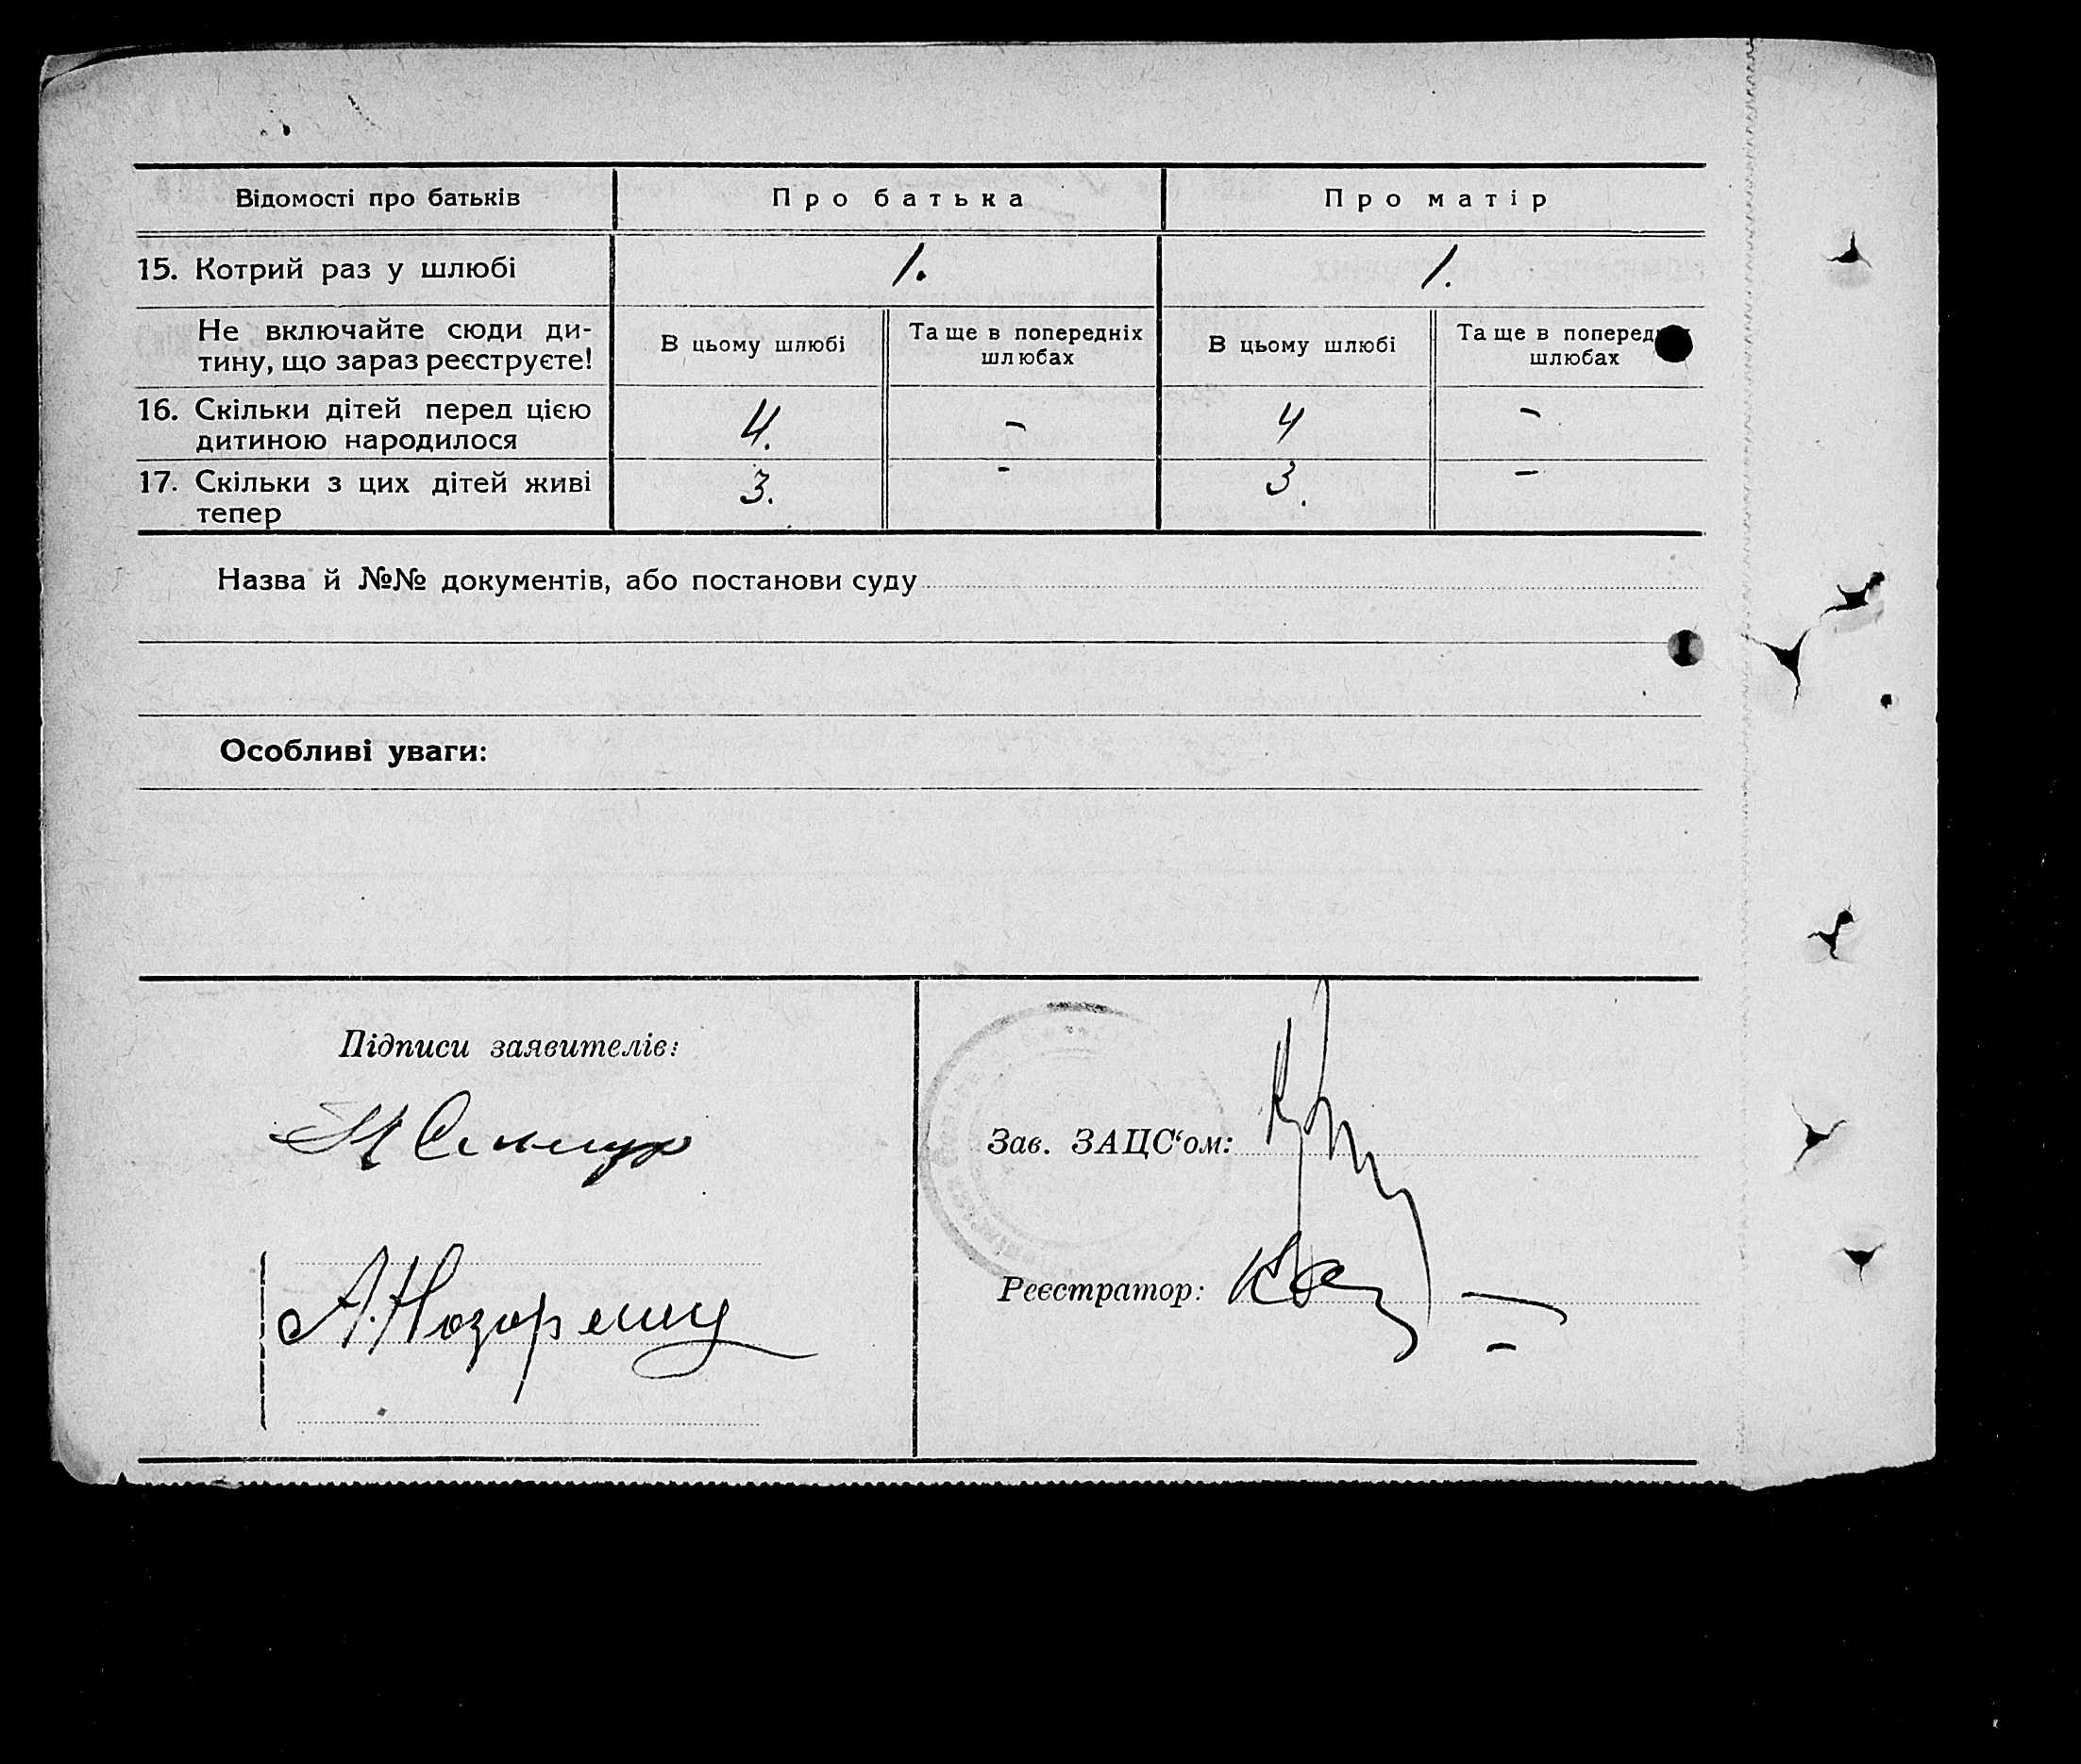 Відомості про батьків Про батька Про матір
15. Котрий раз у шлюбі 1. 1.
Не включайте сюди ди-
тину, що зараз реєструєте!
В цьому шлюбі
Та ще в попередніх
шлюбах
В цьому шлюбі
Та ще в поперед
шлюбах
16. Скільки дітей перед цією
дитиною народилося
4. - 4 -
17. Скільки з цих дітей живі
тепер
3. - 3. -
Назва й №№ документів, або постанови суду
Особливі уваги:
Підписи заявителів:
А.
Зав. ЗАЦС‘ом:
Реєстратор: